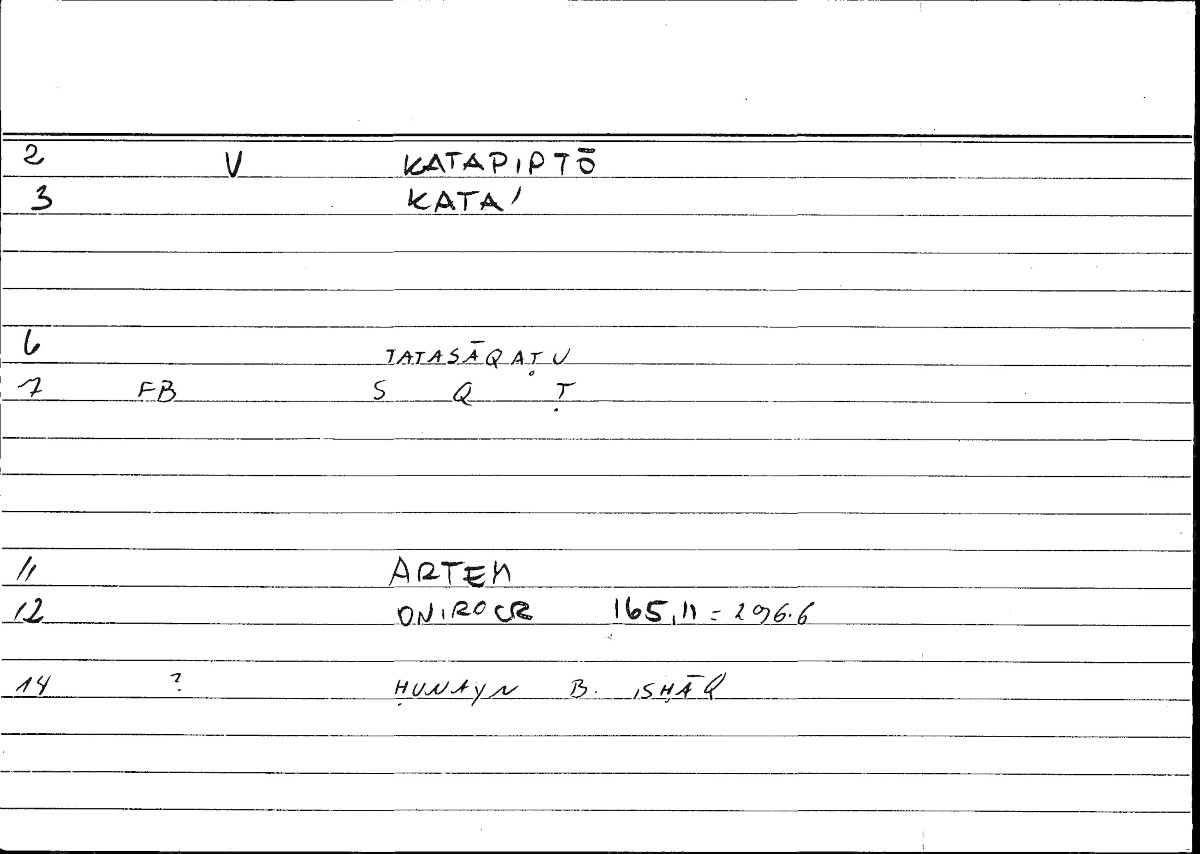 2 V KATAPIPTŌ
3 KATA'
6 TATASĀQAṬU
7 FB S Q Ṭ
11 ARTEM
12 ONIROCR 165,11 = 296.6
14 ? ḤUNAYN B. ISḤĀQ